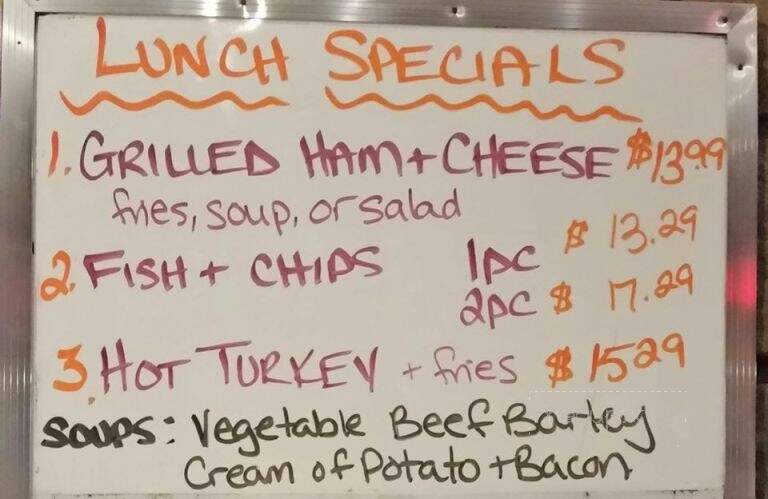 LUNCH SPECIALS
1. GRILLED HAM + CHEESE $13.99
fries, soup, or salad
2. FISH + CHIPS 1pc $ 13.29
2pc $ 17.29
3. HOT TURKEY + fries $1529
SOUPS: Vegetable Beef Barley
Cream of Potato + Bacon